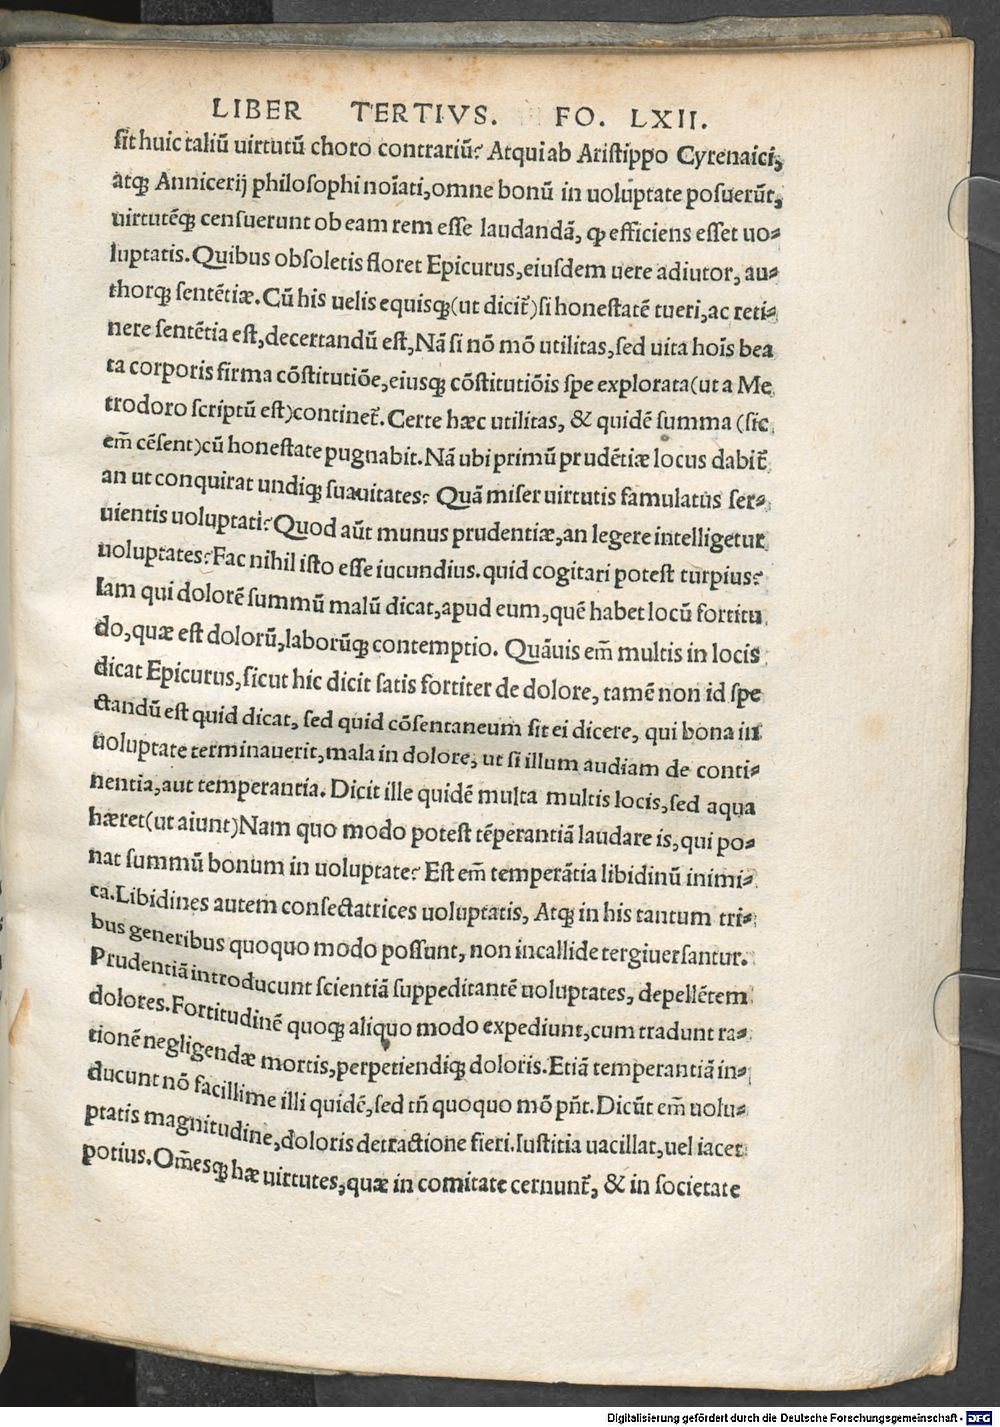 LIBER TERTIVS. FO. LXII.
ſit huic taliũ uirtutũ choro contrariũ? Atqui ab Ariſtippo Cyrenaici,
atq; Annicerij philoſophi noīati, omne bonũ in uoluptate poſuerũt,
uirtutẽq; cenſuerunt ob eam rem eſſe laudandã, ꝙ efficiens eſſet uo-
luptatis. Quibus obſoletis floret Epicurus, eiuſdem uere adiutor, au-
thorq; ſentẽtiæ. Cũ his uelis equisq; (ut dicit̃) ſi honeſtatẽ tueri, ac reti-
nere ſentẽtia eſt, decertandũ eſt, Nã ſi nõ mõ utilitas, ſed uita hoĩs bea
ta corporis firma cõſtitutiõe, eiusq; cõſtitutiõis ſpe explorata (ut a Me
trodoro ſcriptũ eſt) continet̃. Certe hæc utilitas, & quidẽ ſumma (ſic
em̃ cẽſent) cũ honeſtate pugnabit. Nã ubi primũ prudẽtiæ locus dabit̃
an ut conquirat undiq; ſuauitates? Quã miſer uirtutis famulatus ſer-
uientis uoluptati? Quod aũt munus prudentiæ, an legere intelligetur
uoluptates? Fac nihil iſto eſſe iucundius. quid cogitari poteſt turpius?
Iam qui dolorẽ ſummũ malũ dicat, apud eum, quẽ habet locũ fortitu
do, quæ eſt dolorũ, laborũq; contemptio. Quãuis em̃ multis in locis
dicat Epicurus, ſicut hic dicit ſatis fortiter de dolore, tamẽ non id ſpe
ctandũ eſt quid dicat, ſed quid cõſentaneum ſit ei dicere, qui bona in
uoluptate terminauerit, mala in dolore, ut ſi illum audiam de conti-
nentia, aut temperantia. Dicit ille quidẽ multa multis locis, ſed aqua
hæret (ut aiunt) Nam quo modo poteſt tẽperantiã laudare is, qui po-
nat ſummũ bonum in uoluptate? Eſt em̃ temperãtia libidinũ inimi-
ca. Libidines autem conſectatrices uoluptatis, Atq; in his tantum tri-
bus generibus quoquo modo poſſunt, non incallide tergiuerſantur.
Prudentiã introducunt ſcientiã ſuppeditantẽ uoluptates, depellẽtem
dolores. Fortitudinẽ quoq; aliquo modo expediunt, cum tradunt ra-
tionẽ negligendæ mortis, perpetiendiq; doloris. Etiã temperantiã in-
ducunt nõ facillime illi quidẽ, ſed tñ quoquo mõ pñt. Dicũt em̃ uolu-
ptatis magnitudine, doloris detractione fieri. Iuſtitia uacillat, uel iacet
potius. Om̃esq; hæ uirtutes, quæ in comitate cernunt̃, & in ſocietate
Digitalisierung gefördert durch die Deutsche Forschungsgemeinschaft - DFG